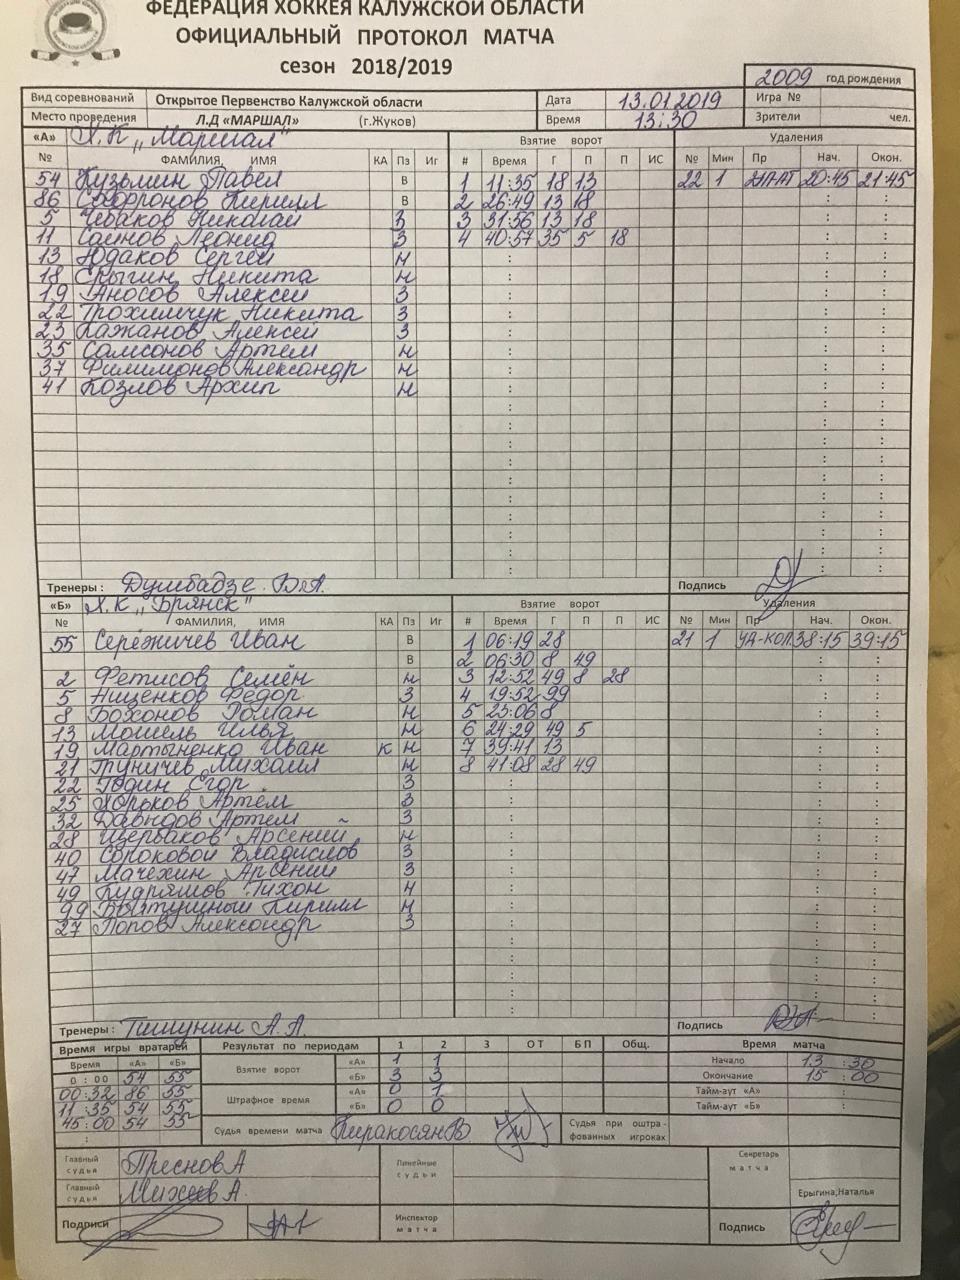 ФЕДЕРАЦИЯ ХОККЕЯ КАЛУЖСКОЙ ОБЛАСТИ
ОФИЦИАЛЬНЫЙ ПРОТОКОЛ МАТЧА
сезон 2018/2019
2009 год рождения
Вид соревнований Открытое Первенство Калужской области Дата 13.01.2019 Игра №
Место проведения Л.Д «МАРШАЛ» (г.Жуков) Время 13:30 Зрители чел.
«А» Х.К „Маршал" Взятие ворот Удаления
№ ФАМИЛИЯ, ИМЯ КА Пз Иг # Время Г П П ИС № Мин Пр Нач. Окон.
54 Кузьмин Павел В 1 11:35 18 13 22 1 20:45 21:45
86 Сафронов Кирилл В 2 26:49 13 18 : :
5 Чебаков Николай З 3 31:56 13 18 : :
11 Саинов Леонид З 4 40:57 35 5 18 : :
13 Юдаков Сергей Н : : :
18 Ерыгин Никита Н : : :
19 Аносов Алексей З : : :
22 Трохимчук Никита З : : :
23 Кажанов Алексей З : : :
35 Самсонов Артём Н : : :
37 Филимонов Александр Н : : :
41 Козлов Архип Н : : :
Тренеры : Думбадзе В.А. Подпись
«Б» Х.К „Брянск" Взятие ворот Удаления
№ ФАМИЛИЯ, ИМЯ КА Пз Иг # Время Г П П ИС № Мин Пр Нач. Окон.
55 Сережичев Иван В 1 06:19 28 21 1 УД-КОЛ 38:15 39:15
В 2 06:30 8 49 : :
2 Фетисов Семён Н 3 12:52 49 8 28 : :
5 Ниценков Фёдор З 4 19:52 99 : :
8 Бохонов Роман Н 5 23:06 8 : :
13 Мошель Илья Н 6 24:29 49 5 : :
19 Мартыненко Иван К Н 7 39:41 13 : :
21 Груничев Михаил Н 8 41:08 28 49 : :
22 Годин Егор З : : :
25 Хорьков Артём З : : :
32 Давыдов Артём З : : :
28 Щербаков Арсений Н : : :
40 Сороковой Владислов З : : :
47 Мачехин Арсений З : : :
49 Кудряшов Тихон Н : : :
99 Кирилл Н : : :
27 Попов Александр З : : :
Тренеры : Тишунин А.А. Подпись
Время игры вратарей Результат по периодам 1 2 3 ОТ БП Общ. Время матча
Время «А» «Б» Взятие ворот «А» 1 1 Начало 13 : 30
0 : 00 54 55 «Б» 3 3 Окончание 15 : 00
00:32 86 55 Штрафное время «А» 0 1 Тайм-аут «А» :
11:35 54 55 «Б» 0 0 Тайм-аут «Б» :
45:00 54 55
: Судья времени матча Киракосян В Судья при оштра-фованных игроках
Главный судья Преснов А Линейные судьи Секретарь матча
Главный судья Михеев А. Ерыгина,Наталья
Подписи Инспектор матча Подпись